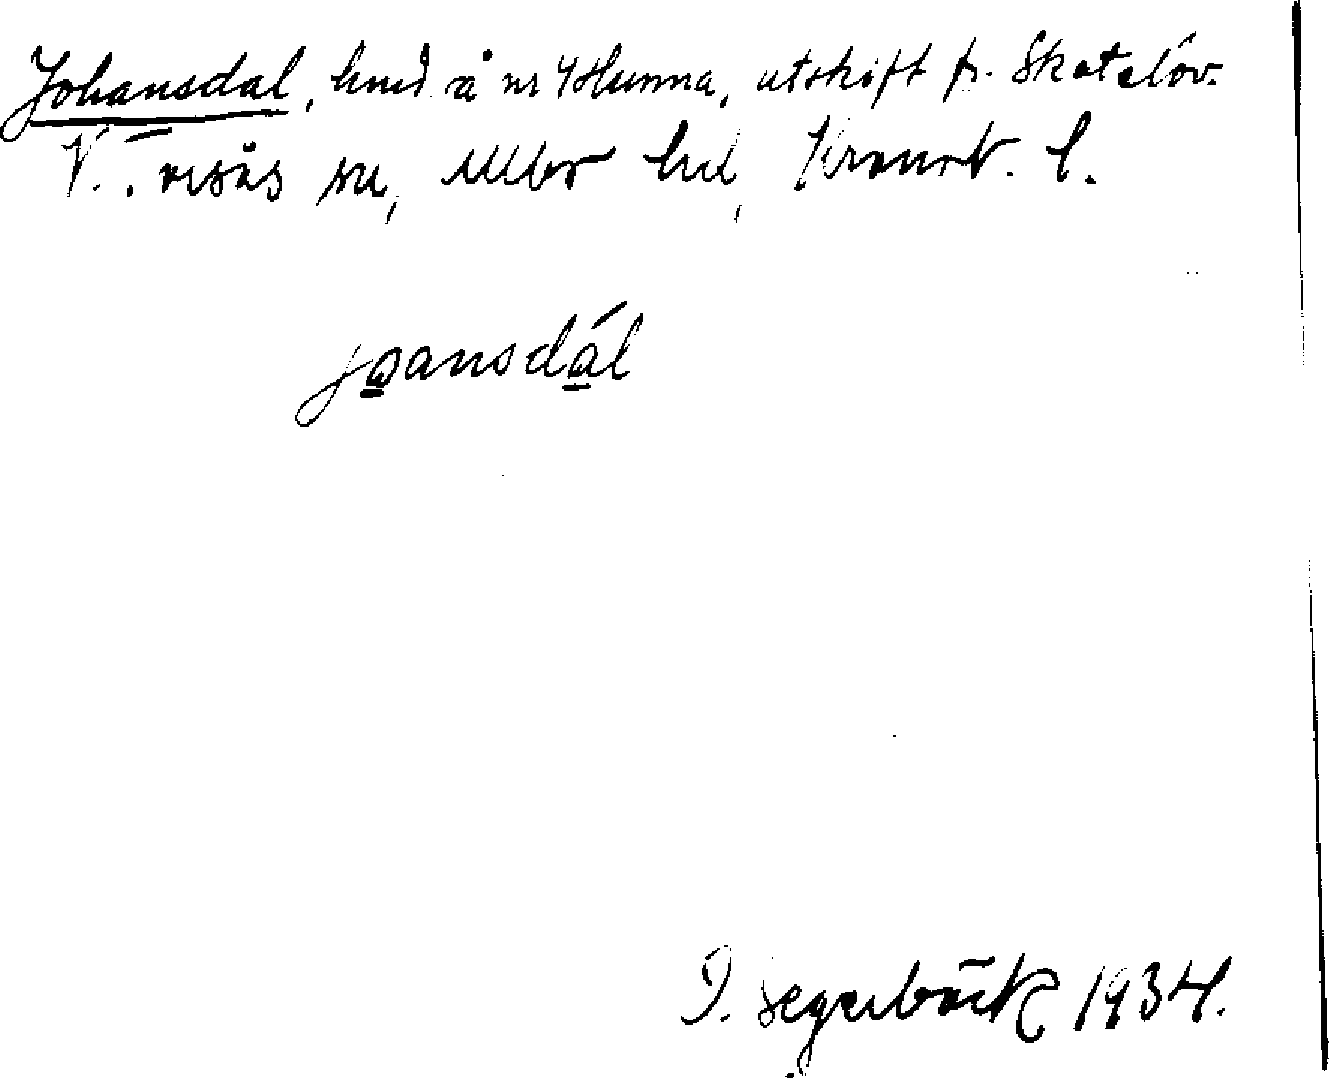 Johansdal, hmd å nr 4 Hunna, utskift fr. Skatelöv.
V. Torsås sn, Allbo hd, Kronob. l.
jo̲ansdá̲l
I. Segerbäck 1934.